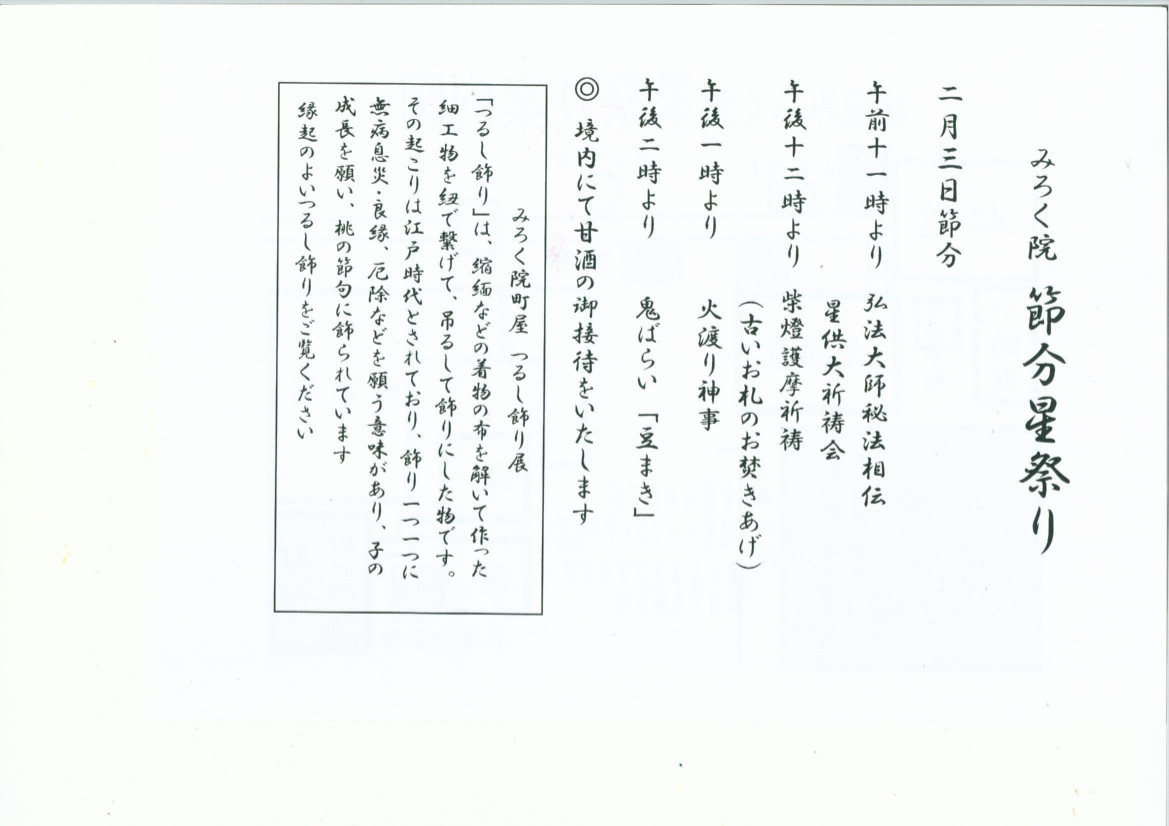 みろく院 節分星祭り
二月三日節分
午前十一時より 弘法大師秘法相伝
星供大祈祷会
午後十二時より 柴燈護摩祈祷
（古いお札のお焚きあげ）
午後一時より 火渡り神事
午後二時より 鬼ばらい「豆まき」
◎ 境内にて甘酒の御接待をいたします
みろく院町屋 つるし飾り展
「つるし飾り」は、縮緬などの着物の布を解いて作った
細工物を紐で繋げて、吊るして飾りにした物です。
その起こりは江戸時代とされており、飾り一つ一つに
無病息災・良縁、厄除などを願う意味があり、子の
成長を願い、桃の節句に飾られています
縁起のよいつるし飾りをご覧ください